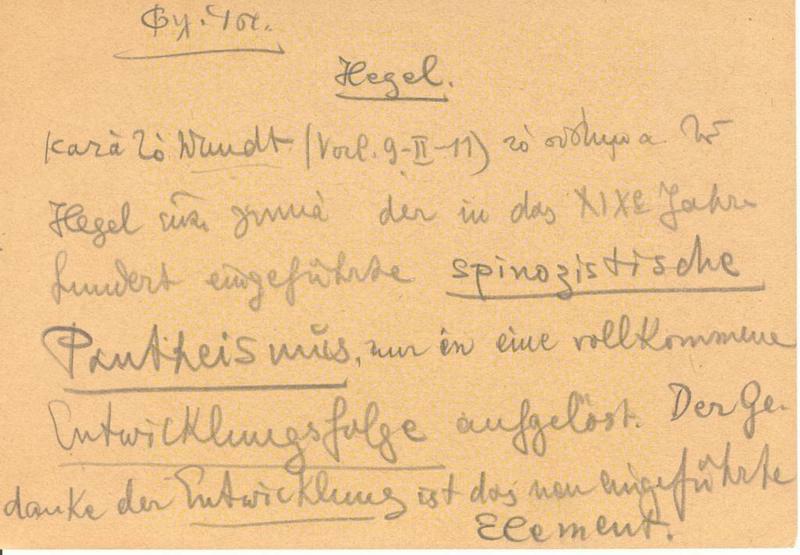 Hegel.
κατὰ τὸ Wundt (Vorl. 9-II-11) τὸ σύστημα τοῦ
Hegel εἶναι γενικά der in das XIXe Jahr
hundert eingeführte spinozistische
Pantheismus, nur in eine vollkommene
Entwicklungsfolge aufgelöst. Der Ge-
danke der Entwicklung ist das neu eingeführte
Element.